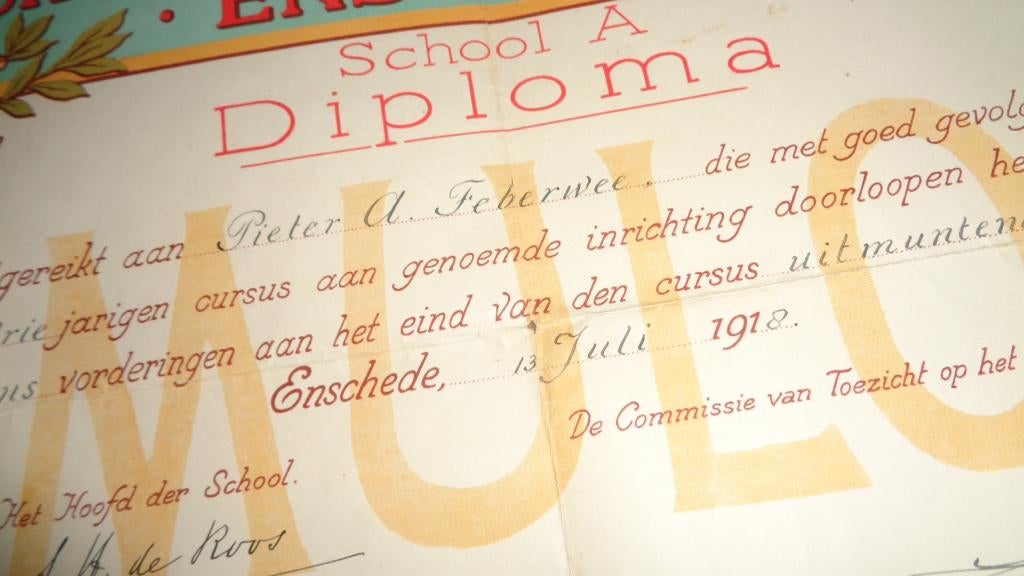 School A
Diploma
gereikt aan Pieter A. Feberwee, die met goed gevolg
rie jarigen cursus aan genoemde inrichting doorloopen he
ns vorderingen aan het eind van den cursus uitmunten
Enschede, 13 Juli 1918.
De Commissie van Toezicht op het
Het Hoofd der School.
de Roos
MULO